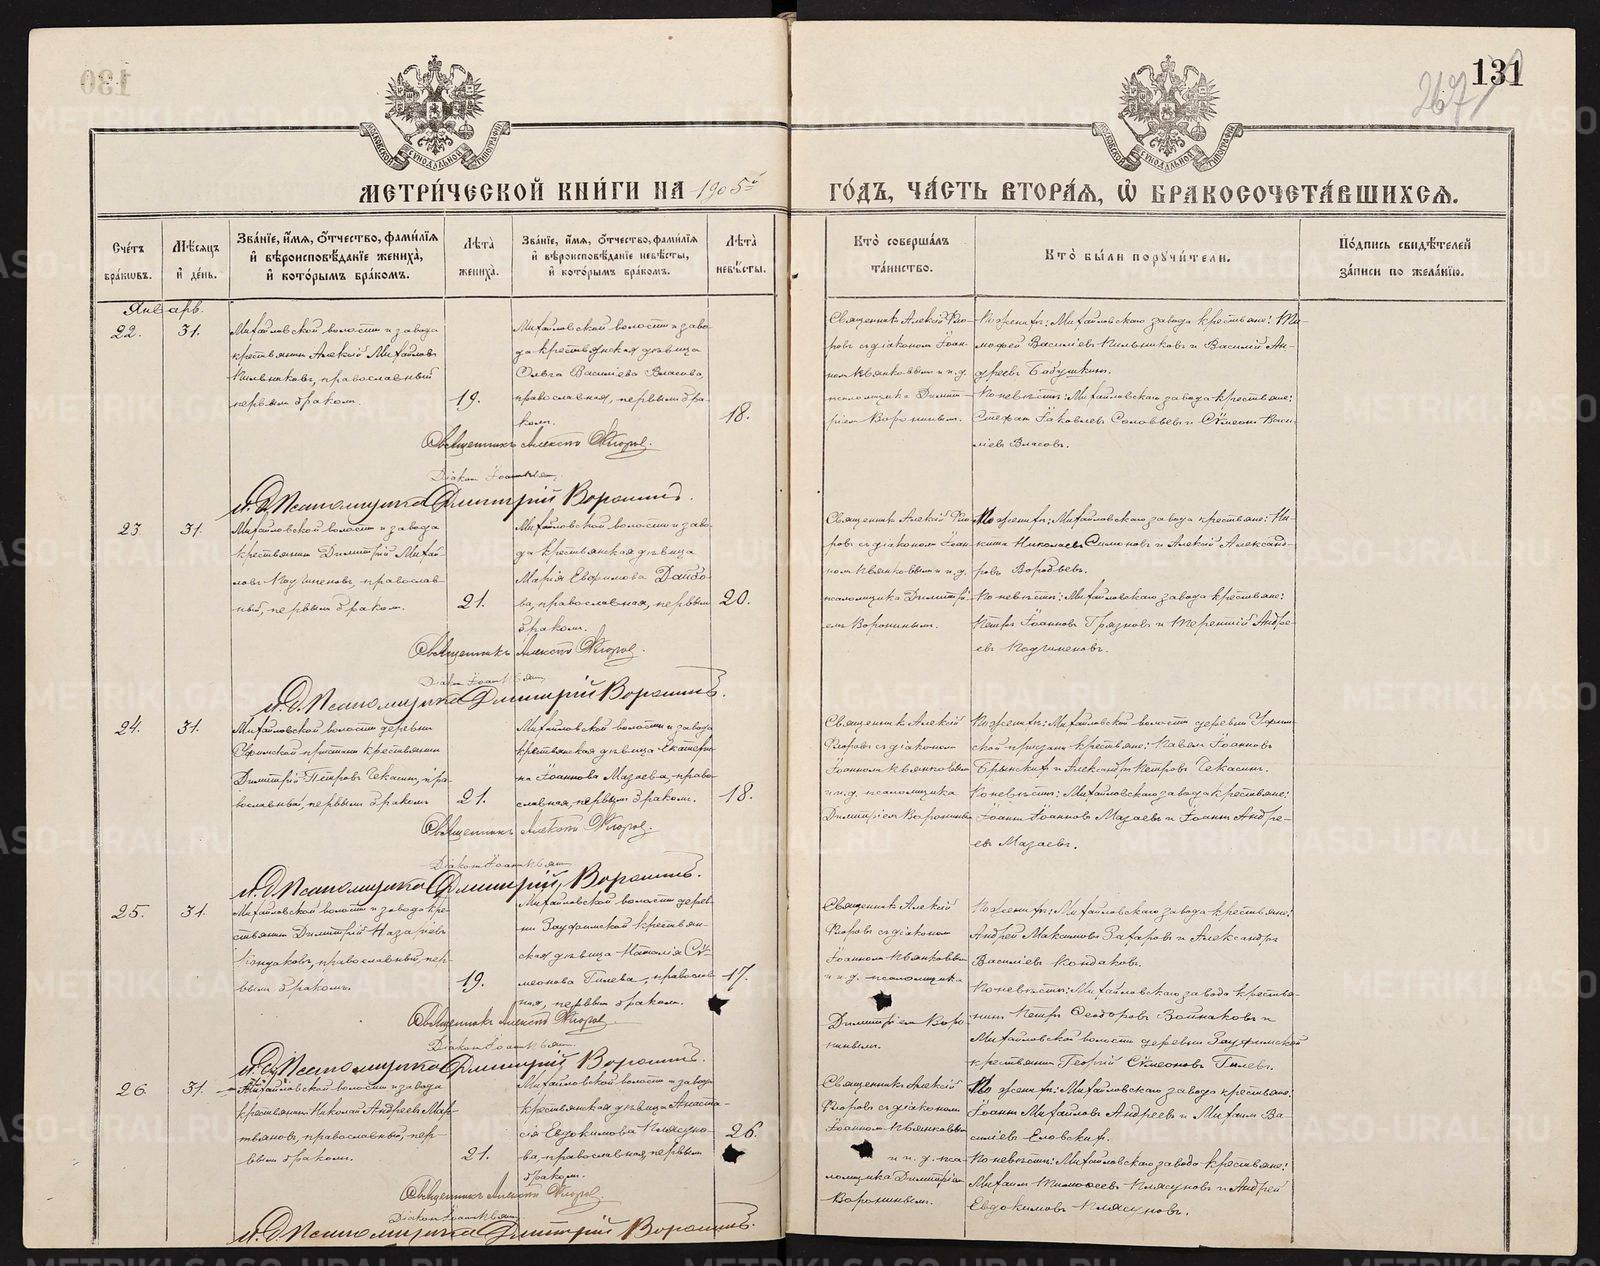 130
131
267
МЕТРИ́ЧЕСКОЙ КНИ́ГИ НА 1905й
ГО́ДЪ, ЧА́СТЬ ВТОРА́Я, Ѡ҆ БРАКОСОЧЕТА́ВШИХСЯ.
Сче́тъ бра́кѡвъ.
Мѣ́сяцъ и҆ де́нь.
Зва́нїе, и҆́мя, ѻ҆́тчество, фами́лїя и҆ вѣроисповѣ́данїе жениха̀, и҆ кото́рымъ бра́комъ.
Лѣ́та жениха̀.
Зва́нїе, и҆́мя, ѻ҆́тчество, фами́лїя и҆ вѣроисповѣ́данїе невѣ́сты, и҆ кото́рымъ бра́комъ.
Лѣ́та невѣ́сты.
Кто̀ соверша́лъ та́инство.
Кто̀ бы́ли пору́чи́тели.
По́дпись свидѣ́телей за́писи по жела́нїю.
Январь.
22.
31.
Михайловской волости и завода
крестьянинъ Алексій Михайловъ
Пильниковъ, православный
первымъ бракомъ.
19.
Михайловской волости и заво-
да крестьянская дѣвица
Ольга Василіева Власова,
православная, первымъ бра-
комъ.
18.
Священникъ Алексій Фло-
ровъ съ діакономъ Іоан-
номъ Квянковымъ и и.д.
псаломщика Димит-
ріемъ Воронинымъ.
По женихѣ: Михайловскаго завода крестьяне: Ти-
мофей Василіевъ Пильниковъ и Василій Ан-
дреевъ Бабушкинъ.
По невѣстѣ: Михайловскаго завода крестьяне:
Стефанъ Іаковлевъ Соловьевъ и Сѵмеонъ Васи-
ліевъ Власовъ.
Священникъ Алексѣй Флоровъ.
Діаконъ Іоаннъ
И. д. Псаломщика Дмитрій Воронинъ.
23.
31.
Михайловской волости и завода
крестьянинъ Димитрій Михай-
ловъ Подчиненовъ, православ-
ный, первымъ бракомъ.
21.
Михайловской волости и заво-
да крестьянская дѣвица
Марія Евфимова
ва, православная, первымъ
бракомъ.
20.
Священникъ Алексій Фло-
ровъ съ діакономъ Іоан-
номъ Квянковымъ и и.д.
псаломщика Димитрі-
емъ Воронинымъ.
По женихѣ: Михайловскаго завода крестьяне: Ни-
кита Николаевъ Симоновъ и Алексій Александ-
ровъ Воробьевъ.
По невѣстѣ: Михайловскаго завода крестьяне:
Петръ Іоанновъ Грязновъ и Терентій Андре-
евъ Подчиненовъ.
Священникъ Алексѣй Флоровъ.
Діаконъ Іоаннъ
И. д. Псаломщика Дмитрій Воронинъ.
24.
31.
Михайловской волости деревни
Уфимской пристани крестьянинъ
Димитрій Петровъ Чекасинъ, пра-
вославный, первымъ бракомъ
21.
Михайловской волости и завода
крестьянская дѣвица Екатери-
на Іоаннова Мазаева, право-
славная, первымъ бракомъ.
18.
Священникъ Алексій
Флоровъ съ діакономъ
Іоанномъ Квянковымъ
и и.д. псаломщика
Димитріемъ Воронинымъ
По женихѣ: Михайловской волости деревни Уфим-
ской пристани крестьяне: Павелъ Іоанновъ
Брынскихъ и Александръ Петровъ Чекасинъ.
По невѣстѣ: Михайловскаго завода крестьяне:
Іоаннъ Іоанновъ Мазаевъ и Іоаннъ Андре-
евъ Мазаевъ.
Священникъ Алексѣй Флоровъ.
Діаконъ Іоаннъ
И. д. Псаломщика Дмитрій Воронинъ.
25.
31.
Михайловской волости и завода кре-
стьянинъ Димитрій Назаревъ
Кондаковъ, православный, пер-
вымъ бракомъ.
19.
Михайловской волости дерев-
ни Зауфимской крестьян-
ская дѣвица Наталія Сѵ-
меонова Гилева, православ-
ная, первымъ бракомъ.
17.
Священникъ Алексій
Флоровъ съ діакономъ
Іоанномъ Квянковымъ
и и.д. псаломщика
Димитріемъ Воро-
нинымъ.
По женихѣ: Михайловскаго завода крестьяне:
Андрей Максимовъ Захаровъ и Александръ
Василіевъ Кондаковъ.
По невѣстѣ: Михайловскаго завода крестья-
нинъ Петръ Ѳеодоровъ и
Михайловской волости деревни Зауфимской
крестьянинъ Георгій Сѵмеоновъ Гилевъ.
Священникъ Алексѣй Флоровъ
Діаконъ Іоаннъ
И. д. Псаломщика Дмитрій Воронинъ.
26.
31.
Михайловской волости и завода
крестьянинъ Николай Андреевъ Мар-
тьяновъ, православный, пер-
вымъ бракомъ.
21.
Михайловской волости и завода
крестьянская дѣвица Анаста-
сія Евдокимова Плясуно-
ва, православная, первымъ
бракомъ.
26.
Священникъ Алексій
Флоровъ съ діакономъ
Іоанномъ Квянковымъ
и и.д. пса-
ломщика Димитріемъ
Воронинымъ.
По женихѣ: Михайловскаго завода крестьяне:
Іоаннъ Михайловъ Андреевъ и Михаилъ Ва-
силіевъ Еловскихъ.
По невѣстѣ: Михайловскаго завода крестьяне:
Михаилъ Тимоѳеевъ Плясуновъ и Андрей
Евдокимовъ Плясуновъ.
Священникъ Алексѣй Флоровъ.
Діаконъ Іоаннъ
И. д. Псаломщика Дмитрій Воронинъ.
METRIKI.GASO-URAL.RU